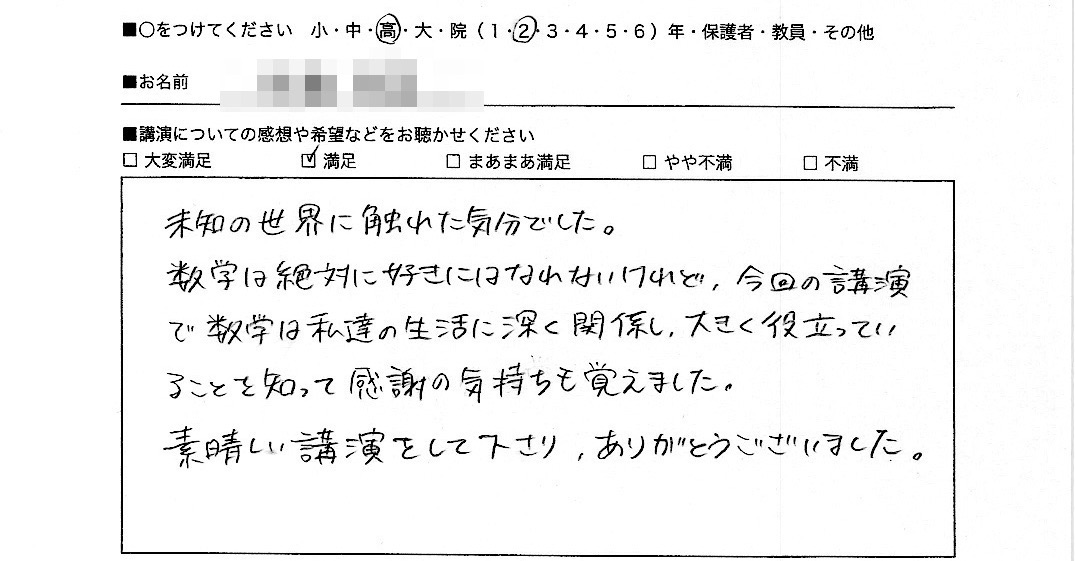 ■○をつけてください 小・中・高・大・院（1・2・3・4・5・6）年・保護者・教員・その他
■お名前
■講演についての感想や希望などをお聴かせください
□ 大変満足 ☑ 満足 □ まあまあ満足 □ やや不満 □ 不満
未知の世界に触れた気分でした。
数学は絶対に好きにはなれないけれど，今回の講演
で数学は私達の生活に深く関係し，大きく役立ってい
ることを知って感謝の気持ちも覚えました。
素晴しい講演をして下さり，ありがとうございました。